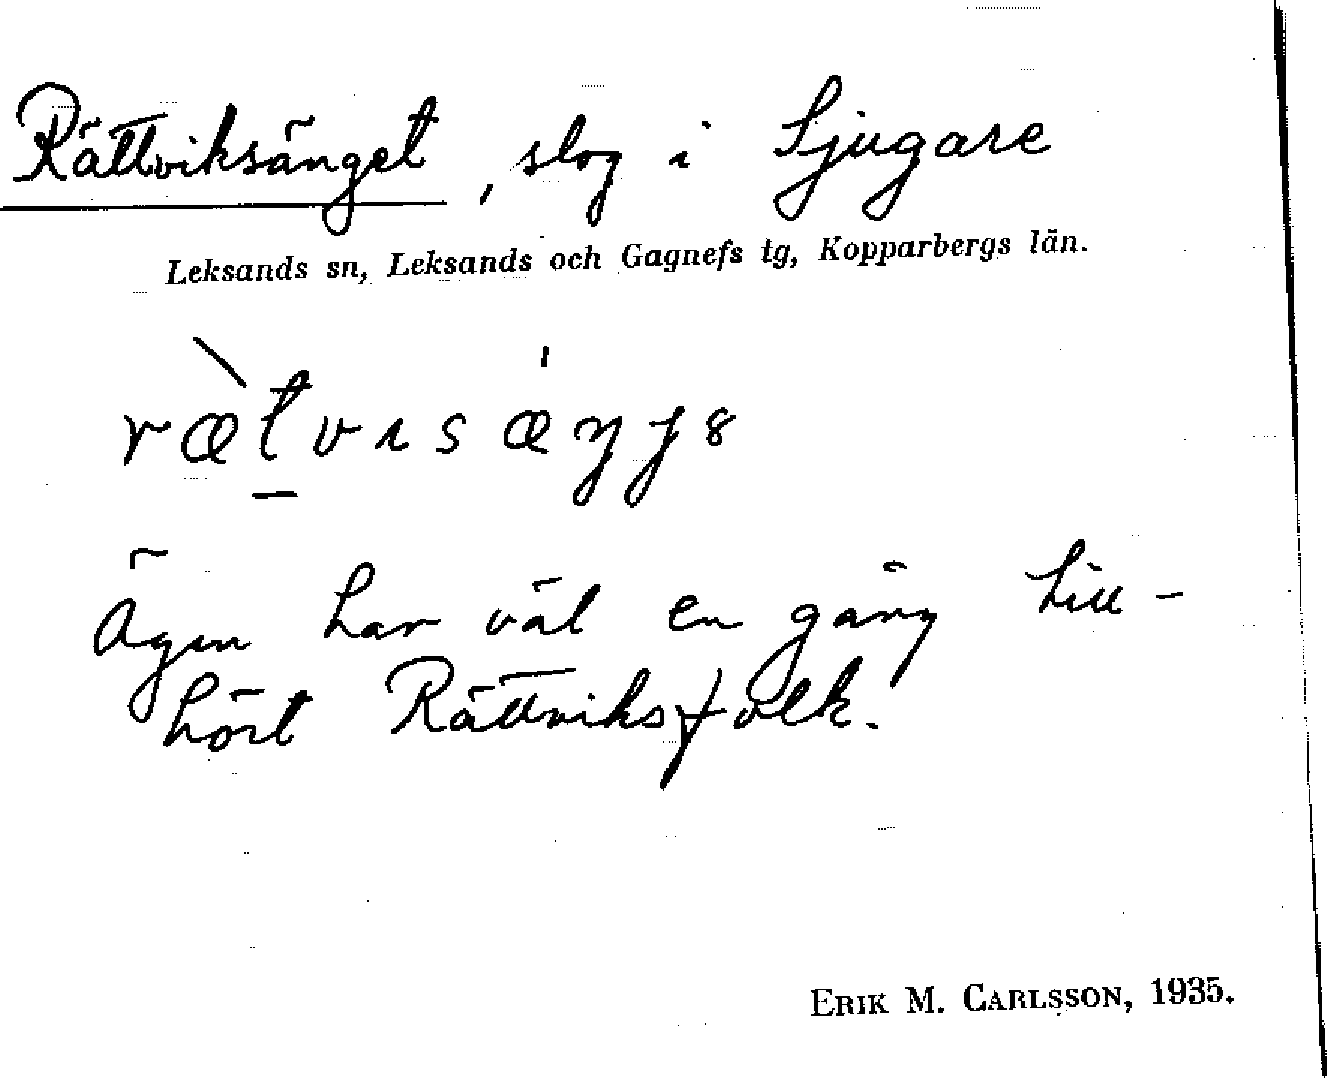 Rättviksänget, slog i Sjugare
Leksands sn, Leksands och Gagnefs tg, Kopparbergs län.
Ägen har väl en gång till-
hört Rättviksfolk.
ERIK M. CARLSSON, 1935.